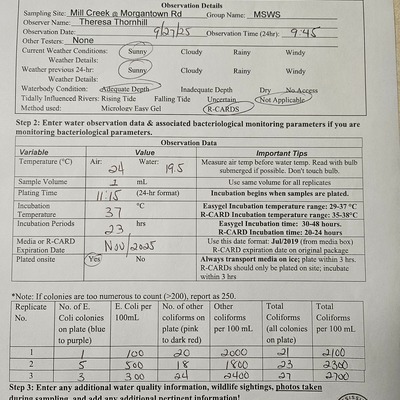 Observation Details
Sampling Site: Mill Creek @ Morgantown Rd Group Name: MSWS
Observer Name: Theresa Thornhill
Observation Date: 9/27/25 Observation Time (24hr): 9:45
Other Testers: None
Current Weather Conditions: Sunny Cloudy Rainy Windy
Weather Details:
Weather previous 24-hr: Sunny Cloudy Rainy Windy
Weather Details:
Waterbody Condition: Adequate Depth Inadequate Depth Dry No Access
Tidally Influenced Rivers: Rising Tide Falling Tide Uncertain Not Applicable
Method used: Micrology Easy Gel R-CARDS
Step 2: Enter water observation data & associated bacteriological monitoring parameters if you are
monitoring bacteriological parameters.
Observation Data
Variable Value Important Tips
Temperature (°C) Air: 24 Water: 19.5 Measure air temp before water temp. Read with bulb
submerged if possible. Don't touch bulb.
Sample Volume 1 mL Use same volume for all replicates
Plating Time 11:15 (24-hr format) Incubation begins when samples are plated.
Incubation
Temperature 37 °C Easygel Incubation temperature range: 29-37 °C
R-CARD Incubation temperature range: 35-38°C
Incubation Periods 23 hrs Easygel Incubation time: 30-48 hours.
R-CARD Incubation time: 20-24 hours
Media or R-CARD
Expiration Date Nov/2025 Use this date format: Jul/2019 (from media box)
R-CARD expiration date on original package.
Plated onsite Yes No Always transport media on ice; plate within 3 hrs.
R-CARDs should only be plated on site; incubate
within 3 hrs
*Note: If colonies are too numerous to count (>200), report as 250.
Replicate
No. No. of E.
Coli colonies
on plate (blue
to purple) E. Coli per
100mL No. of other
coliforms on
plate (pink
to dark red) Other
coliforms
per 100 mL Total
Coliforms
(all colonies
on plate) Total
Coliforms
per 100 mL
1 1 100 20 2000 21 2100
2 5 500 18 1800 23 2300
3 3 300 24 2400 27 2700
Step 3: Enter any additional water quality information, wildlife sightings, photos taken
during sampling, and add any additional pertinent information!